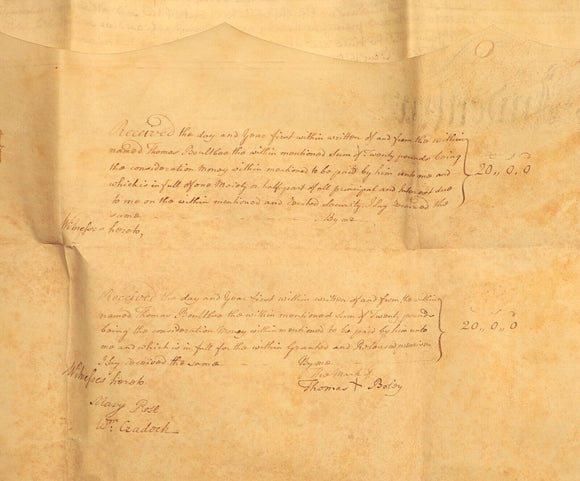 Received the day and Year first within written of and from the within
named Thomas Boultbee the within mentioned Sum of Twenty pounds being
the consideration Money within mentioned to be paid by him unto me and
which is in full of one Moiety or half part of all principal and Interest due
to me on the within mentioned and recited Security I say received the
same
By me
20,, 0,, 0
Witnesses hereto,
Received the day and Year first within written of and from the within
named Thomas Boultbee the within mentioned Sum of Twenty pounds
being the consideration Money within mentioned to be paid by him unto
me and which is in full for the within Granted and Released premises
I say received the same
By me
20,, 0,, 0
Witnesses hereto
The Mark of
Thomas X
Mary
Wm. Cradock